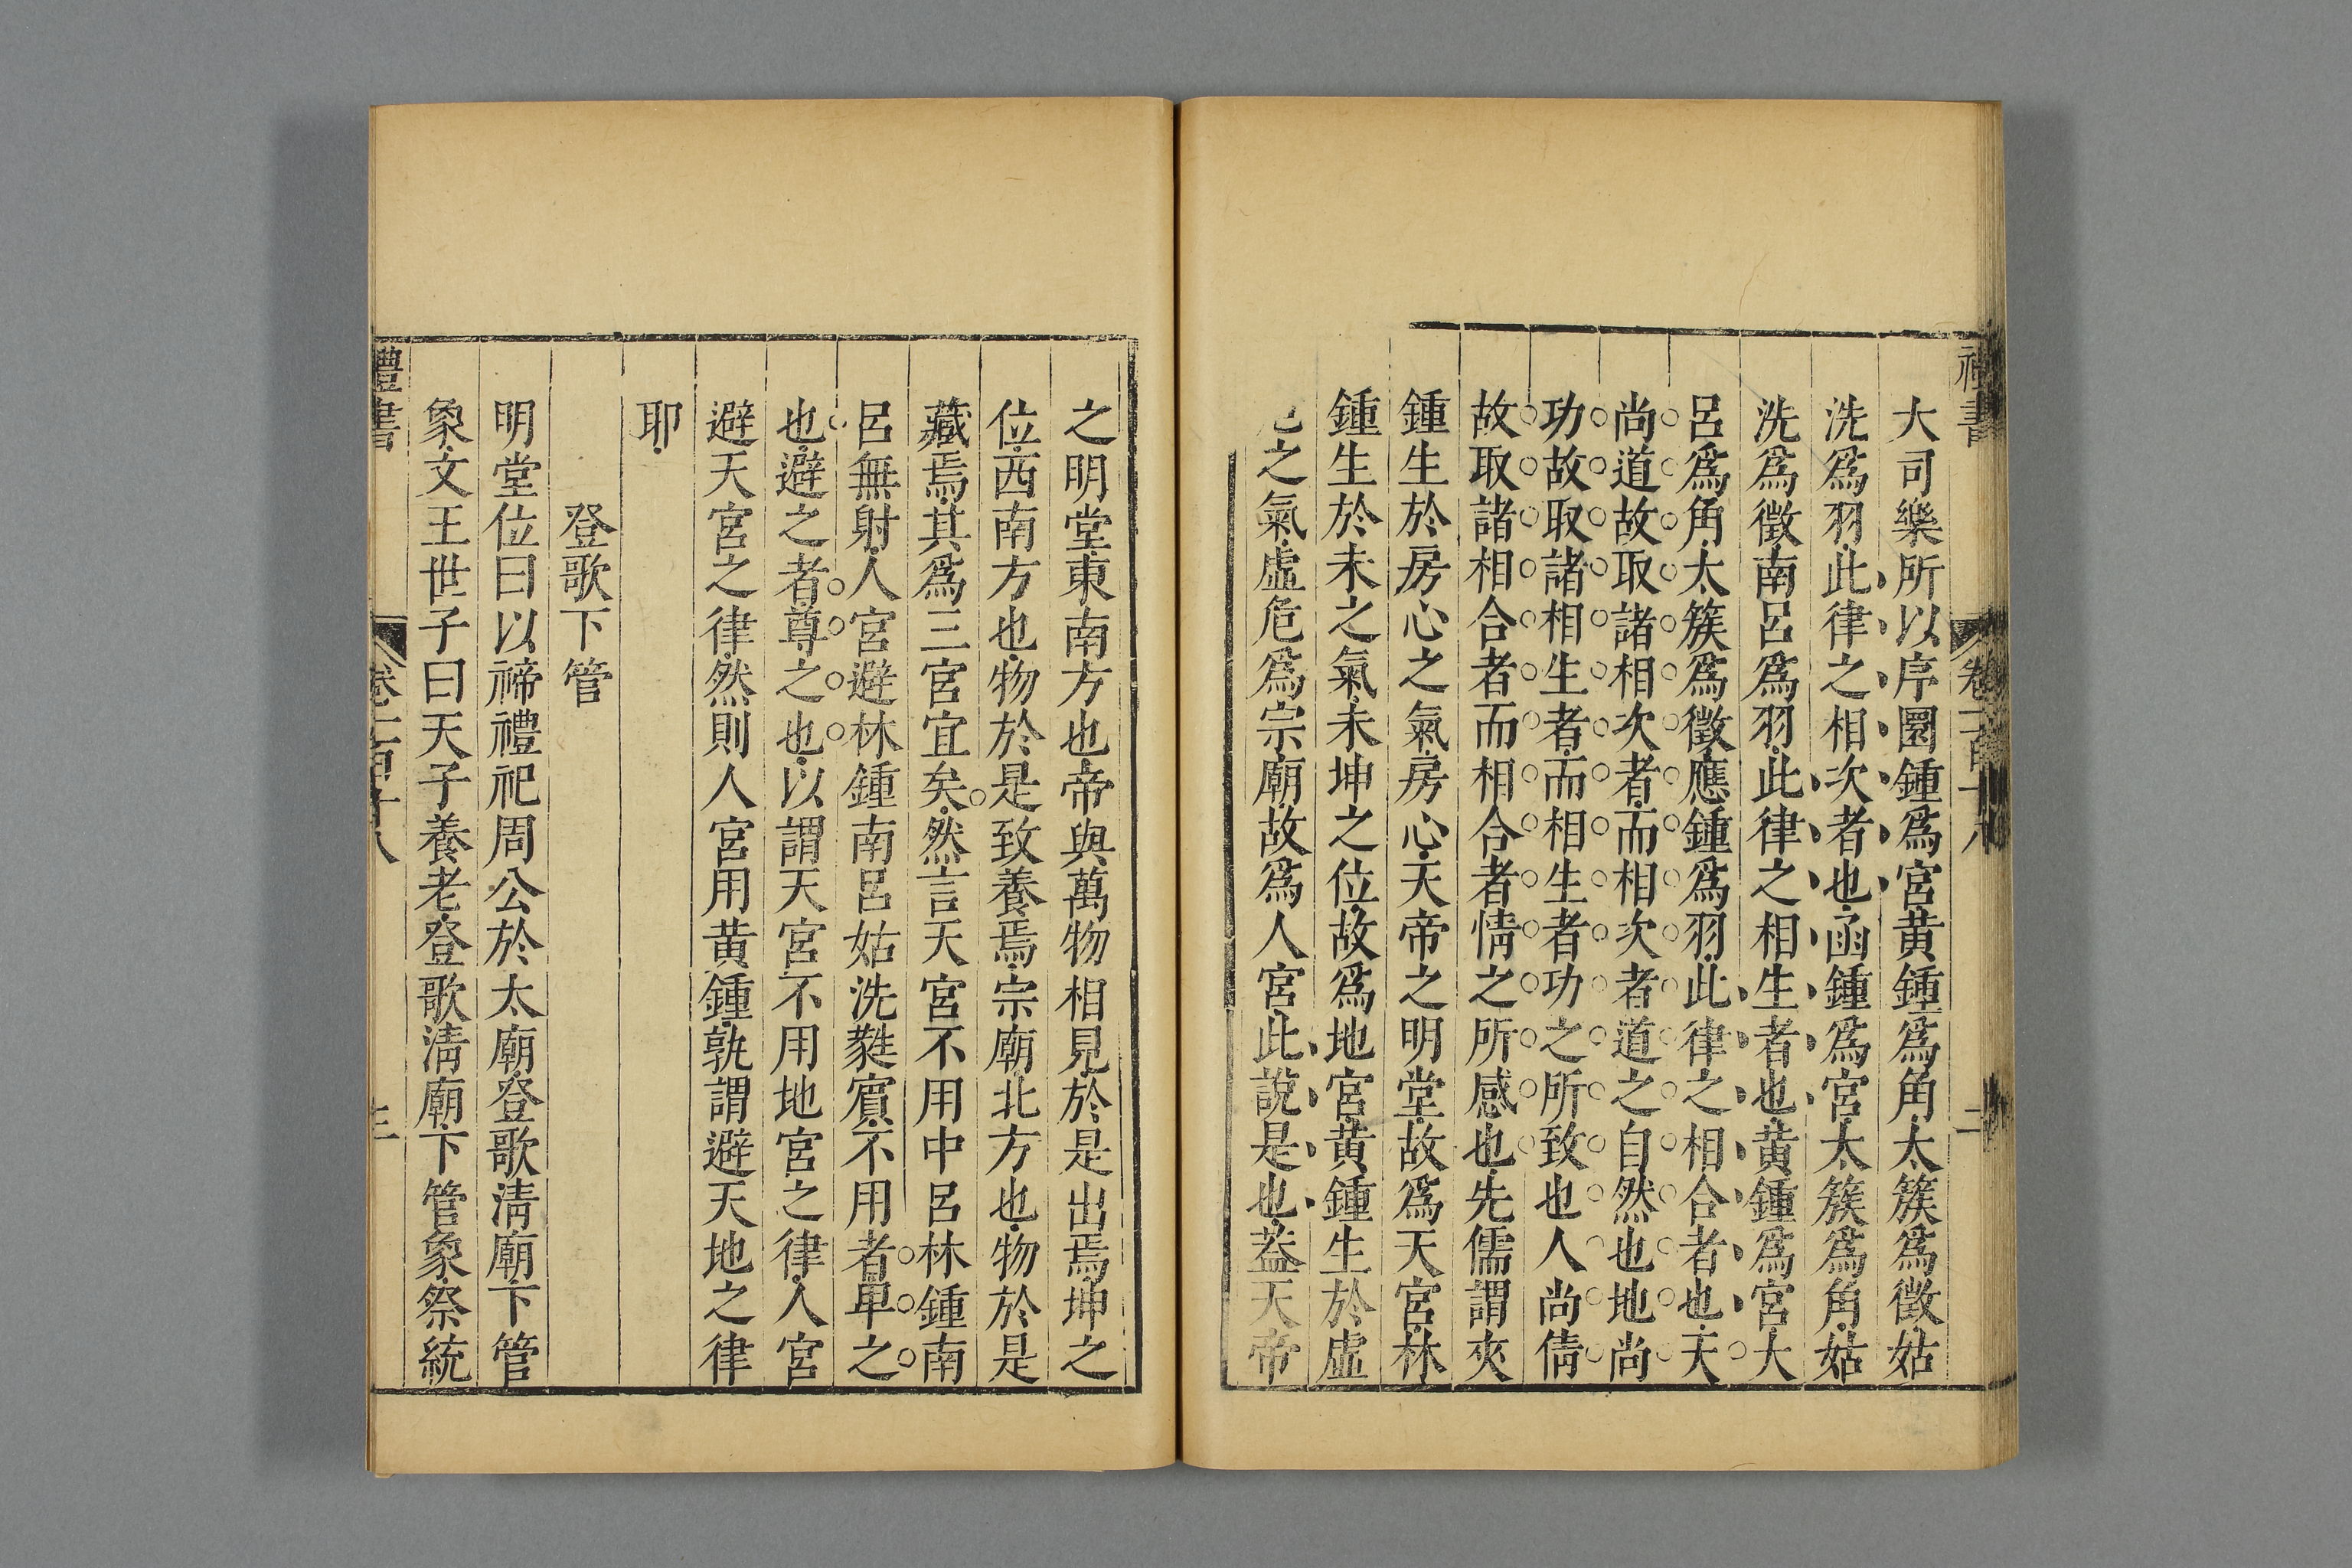 禮書 卷一百十八 二
大司樂所以序圜鍾爲宮黄鍾爲角太簇爲徵姑
洗爲羽此律之相次者也函鍾爲宮太簇爲角姑
洗爲徵南呂爲羽此律之相生者也黄鍾爲宮大
呂爲角太簇爲徵應鍾爲羽此律之相合者也天
尚道故取諸相次者而相次者道之自然也地尚
功故取諸相生者而相生者功之所致也人尚情
故取諸相合者而相合者情之所感也先儒謂夾
鍾生於房心之氣房心天帝之明堂故爲天宮林
鍾生於未之氣未坤之位故爲地宮黄鍾生於虛
之氣虛危爲宗廟故爲人宮此說是也葢天帝
之明堂東南方也帝與萬物相見於是出焉坤之
位西南方也物於是致養焉宗廟北方也物於是
藏焉其爲三宮宜矣然言天宮不用中呂林鍾南
呂無射人宮避林鍾南呂姑洗蕤賓不用者卑之
也避之者尊之也以謂天宮不用地宮之律人宮
避天宮之律然則人宮用黄鍾孰謂避天地之律
耶
登歌下管
明堂位曰以禘禮祀周公於太廟登歌淸廟下管
象文王世子曰天子養老登歌淸廟下管象祭統
禮書 卷一百十八 三